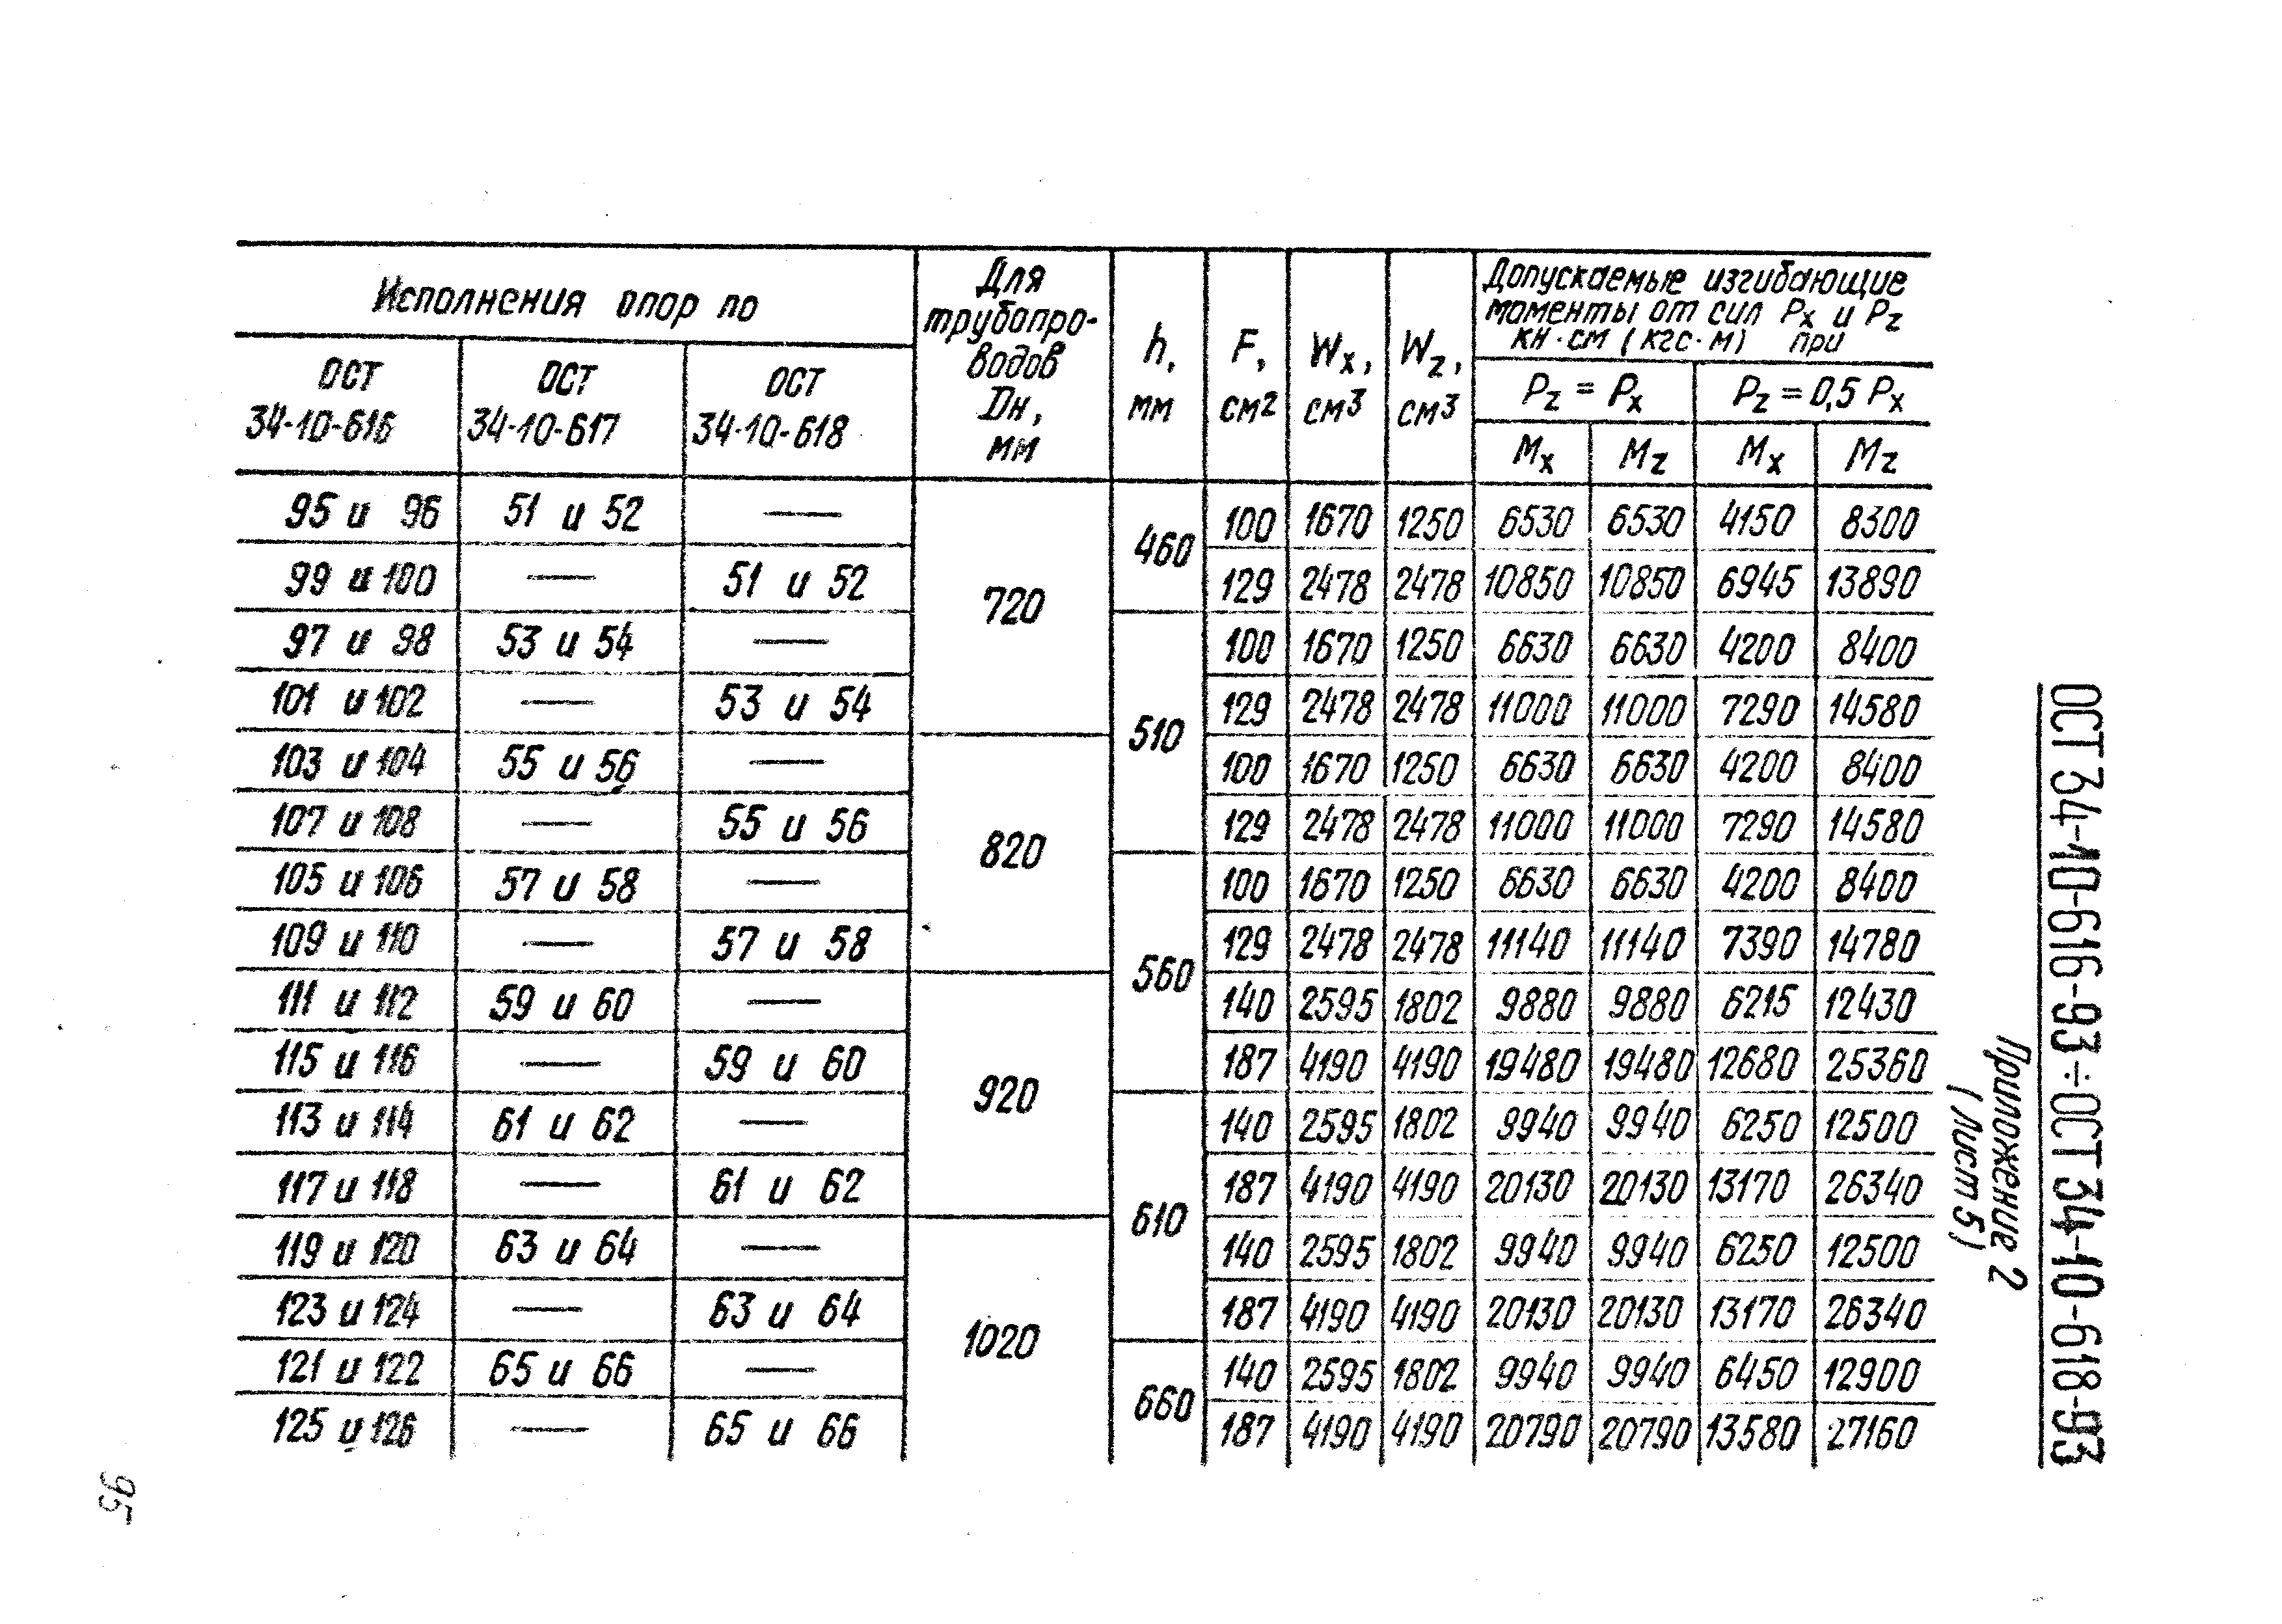 Исполнения опор по
Для трубопро-
водов
Dн,
мм
h,
мм
F,
см²
Wx,
см³
Wz,
см³
Допускаемые изгибающие
моменты от сил Px и Pz
кн·см (кгс·м) при
ОСТ
34-10-616
ОСТ
34-10-617
ОСТ
34-10-618
Pz = Px
Pz = 0,5 Px
Mx Mz Mx Mz
95 и 96 51 и 52 — 720 460 100 1670 1250 6530 6530 4150 8300
99 и 100 — 51 и 52 129 2478 2478 10850 10850 6945 13890
97 и 98 53 и 54 — 510 100 1670 1250 6630 6630 4200 8400
101 и 102 — 53 и 54 129 2478 2478 11000 11000 7290 14580
103 и 104 55 и 56 — 820 100 1670 1250 6630 6630 4200 8400
107 и 108 — 55 и 56 129 2478 2478 11000 11000 7290 14580
105 и 106 57 и 58 — 560 100 1670 1250 6630 6630 4200 8400
109 и 110 — 57 и 58 129 2478 2478 11140 11140 7390 14780
111 и 112 59 и 60 — 920 140 2595 1802 9880 9880 6215 12430
115 и 116 — 59 и 60 187 4190 4190 19480 19480 12680 25360
113 и 114 61 и 62 — 610 140 2595 1802 9940 9940 6250 12500
117 и 118 — 61 и 62 187 4190 4190 20130 20130 13170 26340
119 и 120 63 и 64 — 1020 140 2595 1802 9940 9940 6250 12500
123 и 124 — 63 и 64 187 4190 4190 20130 20130 13170 26340
121 и 122 65 и 66 — 660 140 2595 1802 9940 9940 6450 12900
125 и 126 — 65 и 66 187 4190 4190 20790 20790 13580 27160
ОСТ 34-10-616-93÷ОСТ 34-10-618-93
Приложение 2
(Лист 5)
95